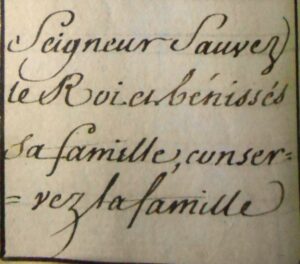 Seigneur Sauvez
le Roi et bénissés
sa famille, conser-
-vez la famille